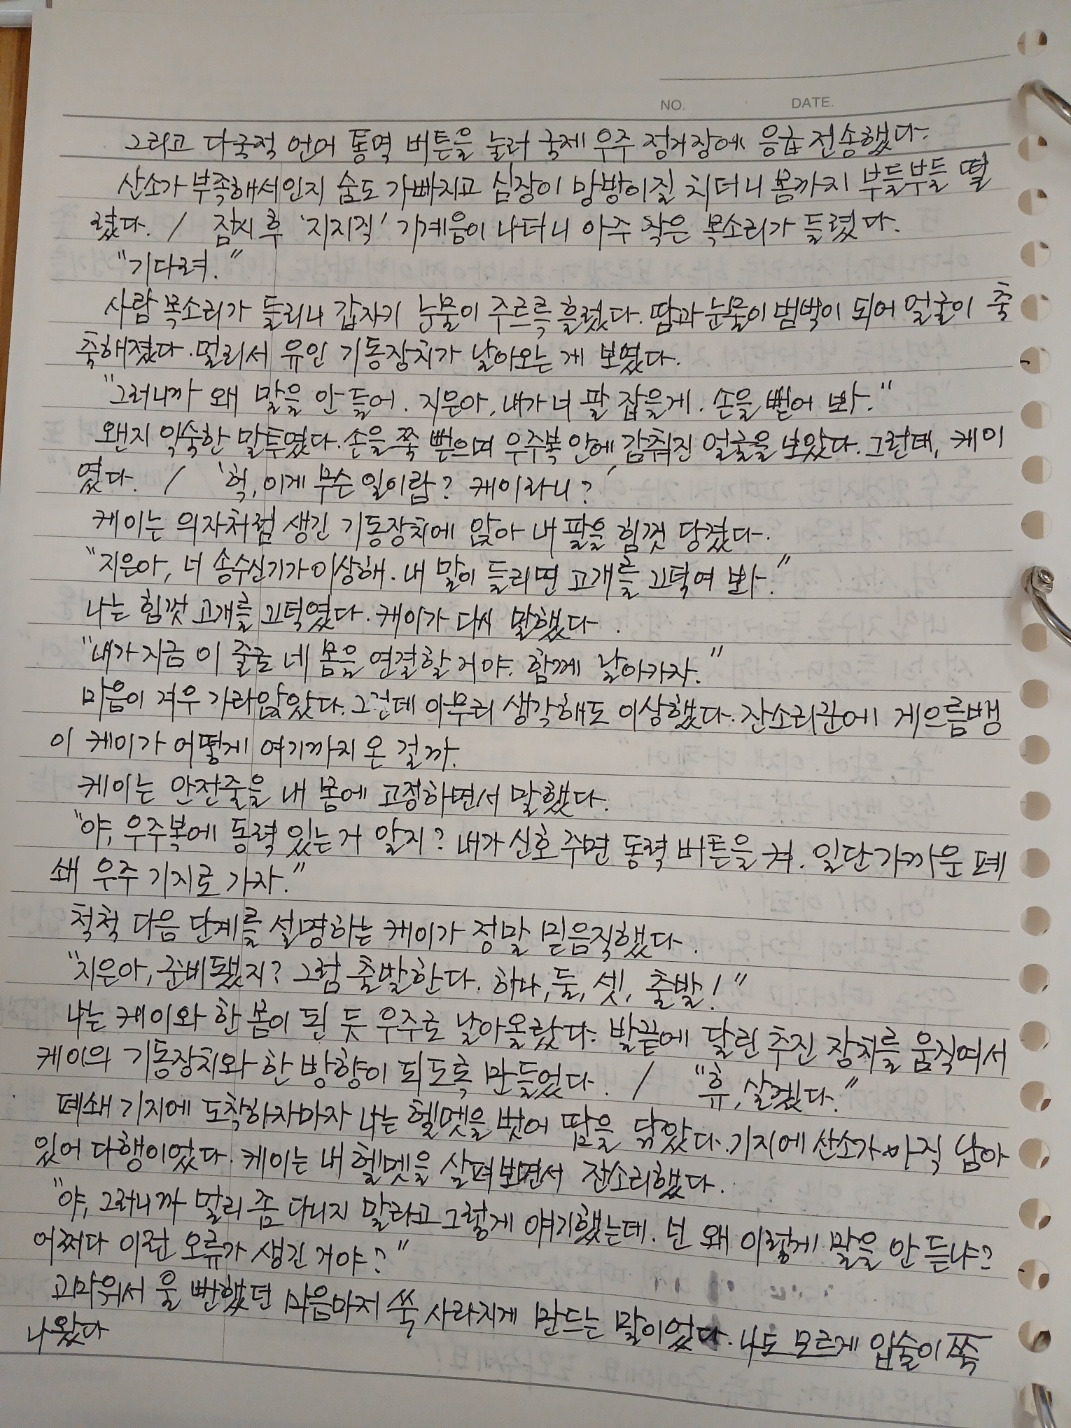 NO. DATE.
그리고 다국적 언어 통역 버튼을 눌러 국제 우주 정거장에 응급 전송했다.
산소가 부족해서인지 숨도 가빠지고 심장이 방망이질 치더니 몸까지 부들부들 떨
렸다. / 잠시 후 '지지직' 기계음이 나더니 아주 작은 목소리가 들렸다.
"기다려."
사람 목소리가 들리니 갑자기 눈물이 주르륵 흘렀다. 땀과 눈물이 범벅이 되어 얼굴이 축
축해졌다. 멀리서 유인 기동장치가 날아오는 게 보였다.
"그러니까 왜 말을 안 들어. 지은아, 내가 너 팔 잡을게. 손을 뻗어 봐."
왠지 익숙한 말투였다. 손을 쭉 뻗으며 우주복 안에 감춰진 얼굴을 보았다. 그런데, 케이
였다. / '헉, 이게 무슨 일이람? 케이라니?'
케이는 의자처럼 생긴 기동장치에 앉아 내 팔을 힘껏 당겼다.
"지은아, 너 송수신기가 이상해. 내 말이 들리면 고개를 끄덕여 봐."
나는 힘껏 고개를 끄덕였다. 케이가 다시 말했다.
"내가 지금 이 줄로 네 몸을 연결할 거야. 함께 날아가자."
마음이 겨우 가라앉았다. 그런데 아무리 생각해도 이상했다. 잔소리꾼에 게으름뱅
이 케이가 어떻게 여기까지 온 걸까.
케이는 안전줄을 내 몸에 고정하면서 말했다.
"야, 우주복에 동력 있는 거 알지? 내가 신호 주면 동력 버튼을 켜. 일단 가까운 폐
쇄 우주 기지로 가자."
척척 다음 단계를 설명하는 케이가 정말 믿음직했다.
"지은아, 준비됐지? 그럼 출발한다. 하나, 둘, 셋, 출발!"
나는 케이와 한 몸이 된 듯 우주로 날아올랐다. 발끝에 달린 추진 장치를 움직여서
케이의 기동장치와 한 방향이 되도록 만들었다. / "휴, 살겠다."
폐쇄 기지에 도착하자마자 나는 헬멧을 벗어 땀을 닦았다. 기지에 산소가 아직 남아
있어 다행이었다. 케이는 내 헬멧을 살펴보면서 잔소리했다.
"야, 그러니까 멀리 좀 다니지 말라고 그렇게 얘기했는데. 넌 왜 이렇게 말을 안 듣냐?
어쩌다 이런 오류가 생긴 거야?"
고마워서 울 뻔했던 마음마저 쏙 사라지게 만드는 말이었다. 나도 모르게 입술이 쭉
나왔다